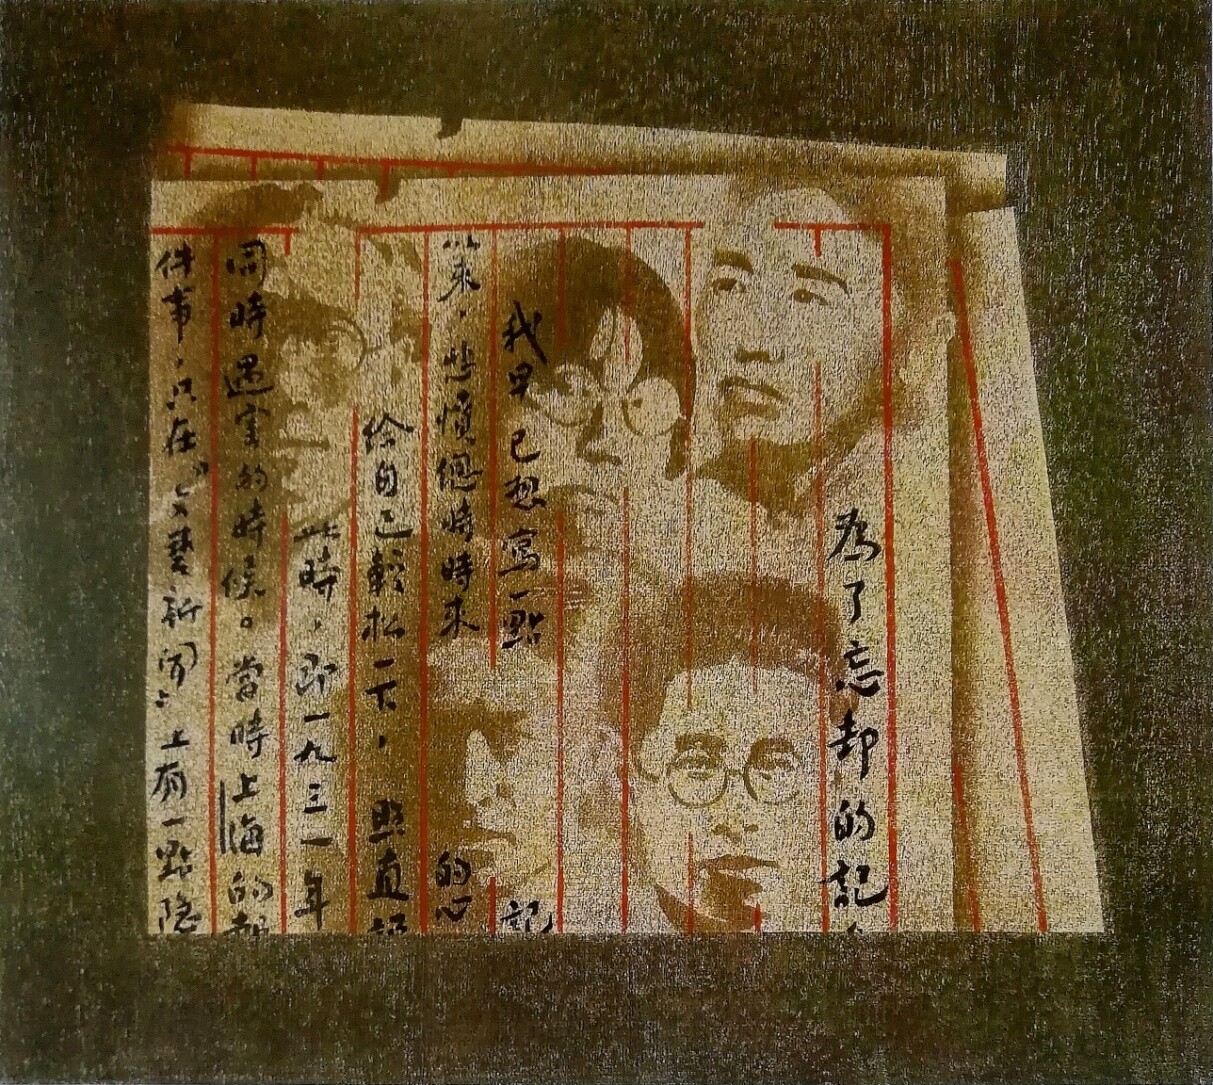 為了忘却的記
我早已想寫一點 記
以來，悲憤總時時來 的心
給自己輕松一下，照直
此時，即一九三一年
同時遇害的時候。當時上海的報
件事，只在《文藝新聞》上有一點隱